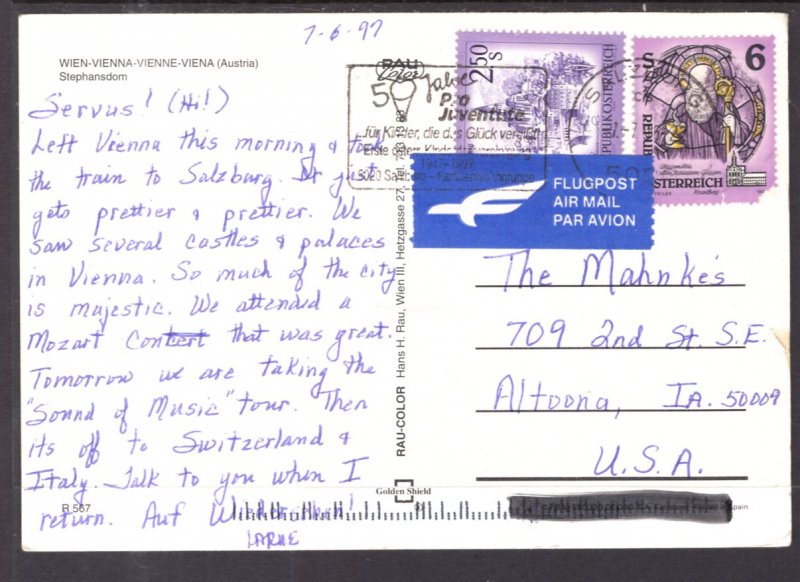 7-6-97
WIEN-VIENNA-VIENNE-VIENA (Austria)
Stephansdom
Servus! (Hi!)
Left Vienna this morning & took
the train to Salzburg. It just
gets prettier & prettier. We
saw several castles & palaces
in Vienna. So much of the city
is majestic. We attended a
Mozart Concert that was great.
Tomorrow we are taking the
"Sound of Music" tour. Then
its off to Switzerland &
Italy. Talk to you when I
return. Auf Wiedersehen!
R 567
RAU
RAU-COLOR Hans H. Rau, Wien III, Hetzgasse 27, Tel.
50 Jahre
Pro
Juventute
für Kinder, die das Glück
1947-1997
5020 Salzburg
2.50 S
REPUBLIK ÖSTERREICH
6
S
REPUBLIK
ÖSTERREICH
FLUGPOST
AIR MAIL
PAR AVION
The Mahnke's
709 2nd St. S.E.
Altoona, IA. 50009
U.S.A.
Golden Shield